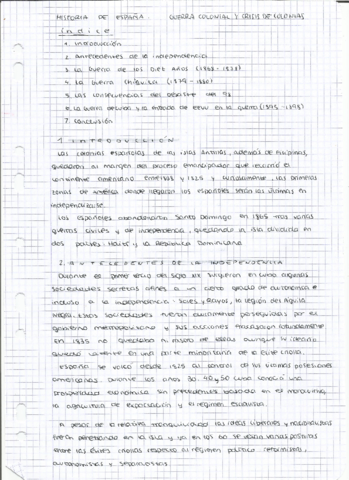 HISTORIA DE ESPAÑA GUERRA COLONIAL Y CRISIS DE COLONIAS
índice
1. Introducción
2. Antecedentes de la independencia
3. La guerra de los Diez Años (1868-1878)
4. La Guerra Chiquita (1879-1880)
5. Las consecuencias del desastre del 98
6. La Guerra y la entrada de EEUU en la guerra (1895-1898)
7. Conclusión
1. INTRODUCCIÓN
Las colonias españolas de las islas Antillas, además de Filipinas,
quedaron al margen del proceso emancipador que recorrió el
continente americano entre y 1825 y curiosamente, las primeras
tierras de América donde llegaron los españoles, serán las últimas en
independizarse.
Los españoles abandonarían Santo Domingo en 1865 tras varias
guerras civiles y de independencia, quedando la isla dividida en
dos países: Haití y la República Dominicana
2. ANTECEDENTES DE LA INDEPENDENCIA
Durante el primer tercio del siglo XIX surgieron en Cuba algunas
sociedades secretas afines a un cierto grado de autonomía e
incluso a la independencia: Soles y Rayos, la Legión del Águila
Negra. Estas sociedades fueron duramente perseguidas por el
gobierno metropolitano y sus acciones fracasaron rotundamente.
En 1835 no quedaba ni rastro de ideas aunque el ideario
quedó latente en una parte minoritaria de la élite criolla.
España se volcó desde 1825 al control de las últimas posesiones
americanas. Durante los años 30, 40 y 50 Cuba conoció una
prosperidad económica sin precedentes basada en el
la agricultura de exportación y el régimen esclavista.
A pesar de la tranquilidad las ideas liberales y nacionalistas
irán penetrando en la isla y ya en los 60 se verán varias posturas
entre las élites criollas respecto al régimen político: reformistas,
autonomistas y separatistas.